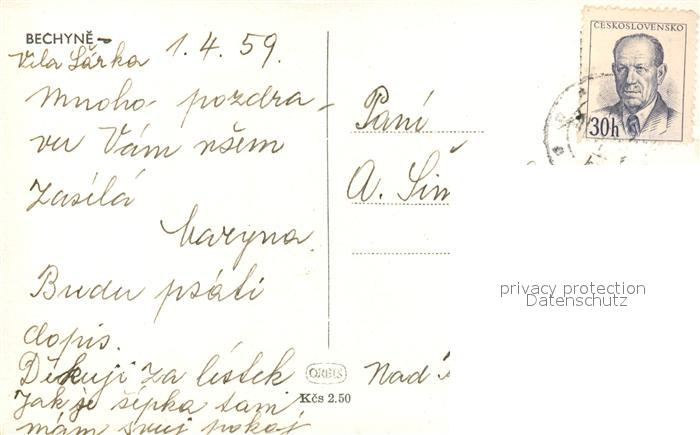 BECHYNĚ
Vila Šárka 1.4.59.
Mnoho pozdra-
vu Vám všem
zasílá
Maryna.
Budu psáti
dopis.
Děkuji za lístek
Jak je šipka tam
mám svůj pokoj
ORBIS
Kčs 2.50
ČESKOSLOVENSKO
30h
Paní
A. Šim
Nad
privacy protection
Datenschutz